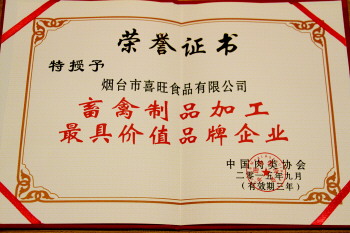 荣誉证书
特授予
烟台市喜旺食品有限公司
畜禽制品加工
最具价值品牌企业
中国肉类协会
二〇一五年九月
(有效期三年)